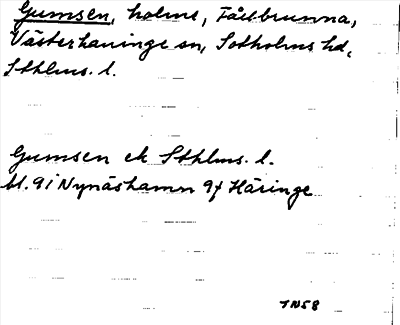 Gumsen, holme, Fållbrunna,
Västerhaninge sn, Sotholms hd,
Sthlms. l.
Gumsen ek Sthlms. l.
bl. 91 Nynäshamn 9f Häringe
1N58